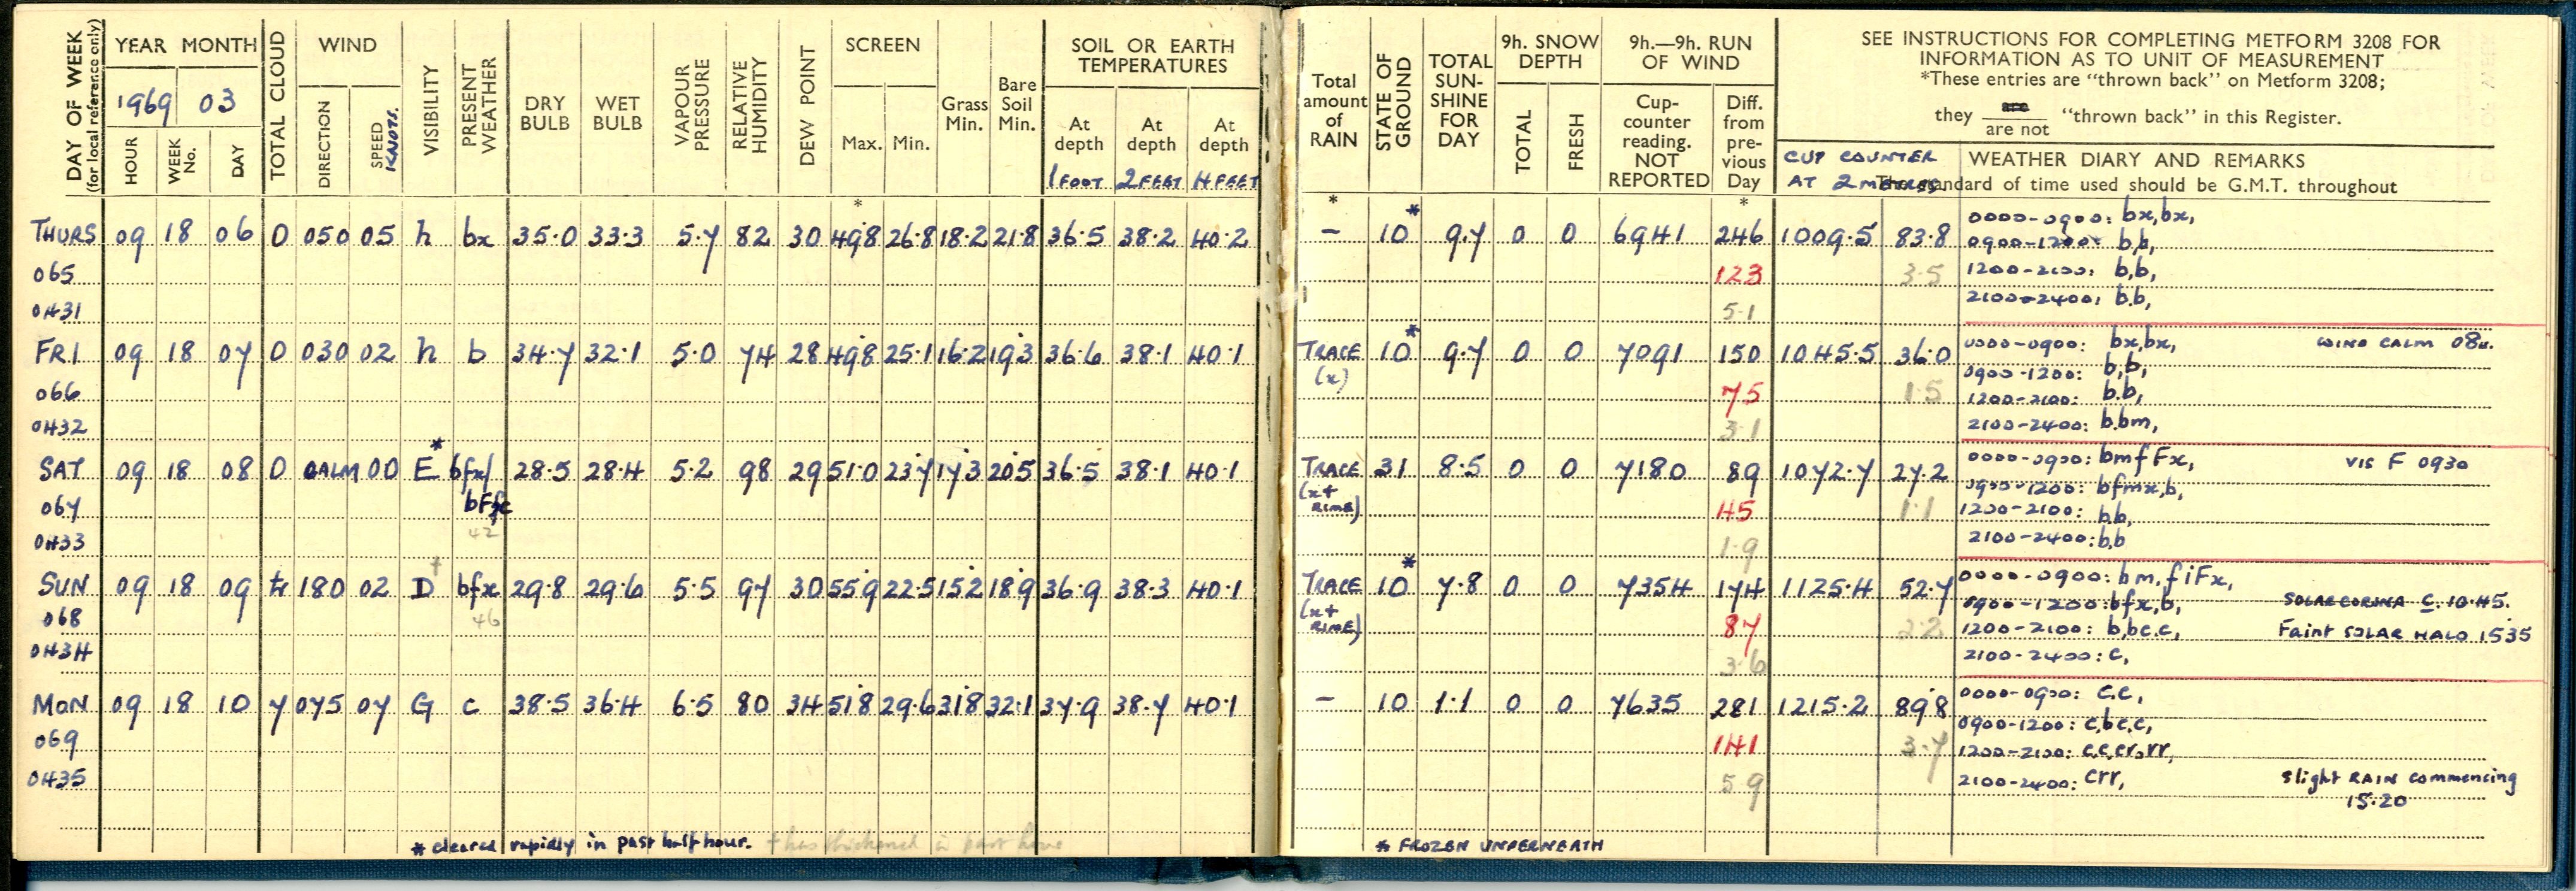 DAY OF WEEK
(for local reference only)
YEAR MONTH
1969 03
HOUR WEEK No. DAY
TOTAL CLOUD
WIND
DIRECTION SPEED KNOTS.
VISIBILITY
PRESENT WEATHER
DRY BULB
WET BULB
VAPOUR PRESSURE
RELATIVE HUMIDITY
DEW POINT
SCREEN
Max. Min.
Grass Min.
Bare Soil Min.
SOIL OR EARTH TEMPERATURES
At depth At depth At depth
1 FOOT 2 FEET 4 FEET
*
THURS 09 18 06 0 050 05 h bx 35.0 33.3 5.7 82 30 49.8 26.8 18.2 21.8 36.5 38.2 40.2
065
0431
FRI 09 18 07 0 030 02 h b 34.7 32.1 5.0 74 28 49.8 25.1 16.2 19.3 36.6 38.1 40.1
066
0432
SAT 09 18 08 0 CALM 00 E* bfx/ 28.5 28.4 5.2 98 29 51.0 23.7 17.3 20.5 36.5 38.1 40.1
067
42
0433
SUN 09 18 09 tr 180 02 D† bfx 29.8 29.6 5.5 97 30 55.9 22.5 15.2 18.9 36.9 38.3 40.1
068 46
0434
MON 09 18 10 7 075 07 G c 38.5 36.4 6.5 80 34 51.8 29.6 31.8 32.1 37.9 38.7 40.1
069
0435
* cleared rapidly in past half hour. † has thickened in past hour
Total amount of RAIN
STATE OF GROUND
TOTAL SUN-SHINE FOR DAY
9h. SNOW DEPTH
TOTAL FRESH
9h.—9h. RUN OF WIND
Cup-counter reading. NOT REPORTED
Diff. from pre-vious Day
SEE INSTRUCTIONS FOR COMPLETING METFORM 3208 FOR
INFORMATION AS TO UNIT OF MEASUREMENT
*These entries are "thrown back" on Metform 3208;
they are / are not "thrown back" in this Register.
CUP COUNTER
AT 2 METRES
WEATHER DIARY AND REMARKS
The standard of time used should be G.M.T. throughout
* *
– 10* 9.7 0 0 6941 246 1009.5 83.8 0000-0900: bx,bx,
0900-1200: b,b,
123 3.5 1200-2100: b,b,
5.1 2100-2400: b,b,
TRACE 10* 9.7 0 0 7091 150 1045.5 36.0 0000-0900: bx,bx, WIND CALM 08h.
(x) 0900-1200: b,b,
75 1.5 1200-2100: b.b,
3.1 2100-2400: b.bm,
TRACE 31 8.5 0 0 7180 89 1072.7 27.2 0000-0900: bmfFx, VIS F 0930
(x+ RIME) 0900-1200: bfmx,b,
45 1.1 1200-2100: b,b,
1.9 2100-2400: b,b
TRACE 10* 7.8 0 0 7354 174 1125.4 52.7 0000-0900: bm,fiFx,
(x+ RIME) 0900-1200: bfx,b, SOLAR CORONA C. 10.45.
87 2.2 1200-2100: b,bc.c, Faint SOLAR HALO 1535
3.6 2100-2400: c,
– 10 1.1 0 0 7635 281 1215.2 89.8 0000-0900: c,c,
0900-1200: c,bc,c,
141 3.7 1200-2100: c,c,cr₀,rr,
5.9 2100-2400: crr, Slight RAIN commencing
15.20
* FROZEN UNDERNEATH